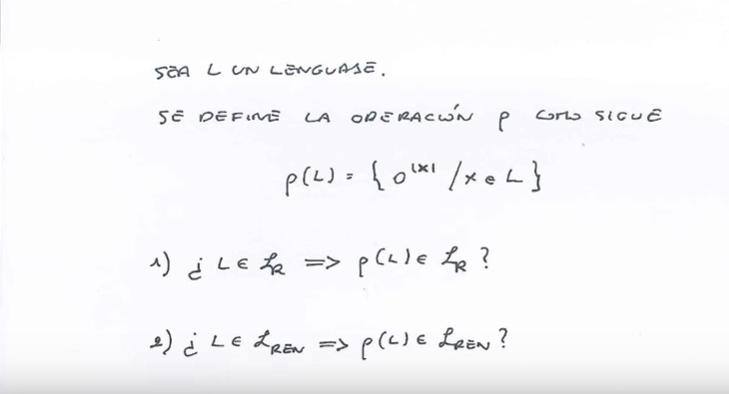 SEA L UN LENGUAJE.
SE DEFINE LA OPERACIÓN P COMO SIGUE
P(L) = { 0^|x| / x ∈ L }
1) ¿ L ∈ ℒ_R => P(L) ∈ ℒ_R ?
2) ¿ L ∈ ℒ_REN => P(L) ∈ ℒ_REN ?